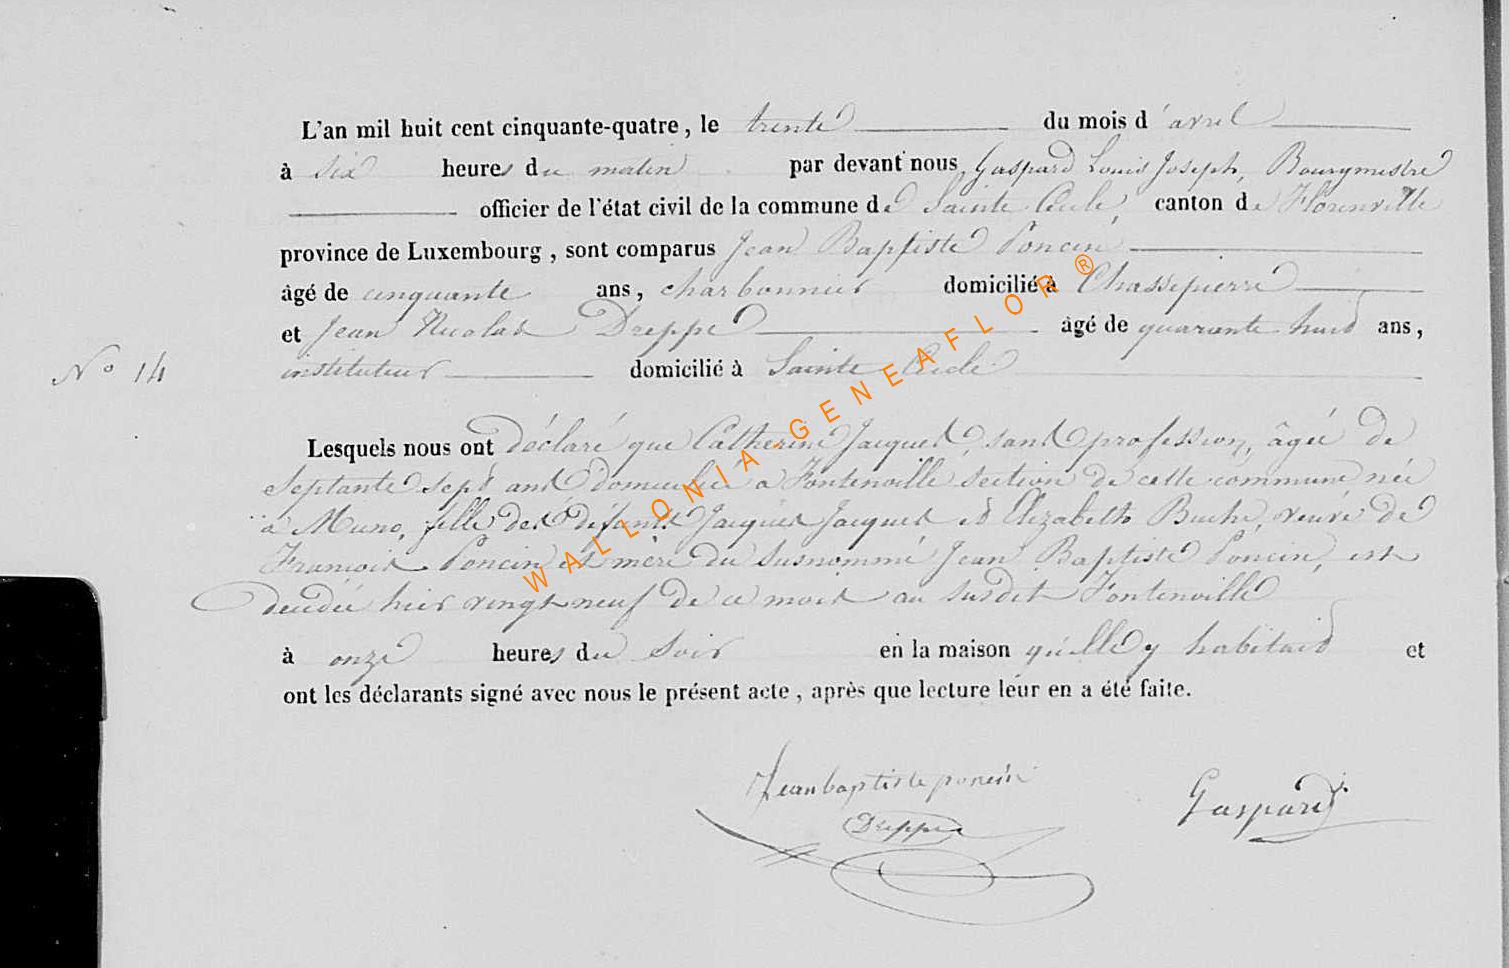 L'an mil huit cent cinquante-quatre, le trente du mois d'avril
à six heures du matin par devant nous, Gaspard Louis Joseph, Bourgmestre
officier de l'état civil de la commune de Sainte Cécile, canton de Florenville
province de Luxembourg, sont comparus Jean Baptiste Poncin
âgé de cinquante ans, charbonnier domicilié à Chassepierre
et Jean Nicolas Dreppe âgé de quarante huit ans,
N° 14
instituteur domicilié à Sainte Cécile
Lesquels nous ont déclaré que Catherine Jacques, sans profession, âgée de
septante sept ans domiciliée à Fontenoille section de cette commune née
à Muno, fille des défunts Jacques Jacques et Elizabeth veuve de
François Poncin et mère du susnommé Jean Baptiste Poncin, est
décédée hier vingt neuf de ce mois au susdit Fontenoille
à onze heures du soir en la maison qu'elle y habitait et
ont les déclarants signé avec nous le présent acte, après que lecture leur en a été faite.
Jean baptiste poncin
Dreppe
Gaspard
WALLONIA-GENEAFLOR®